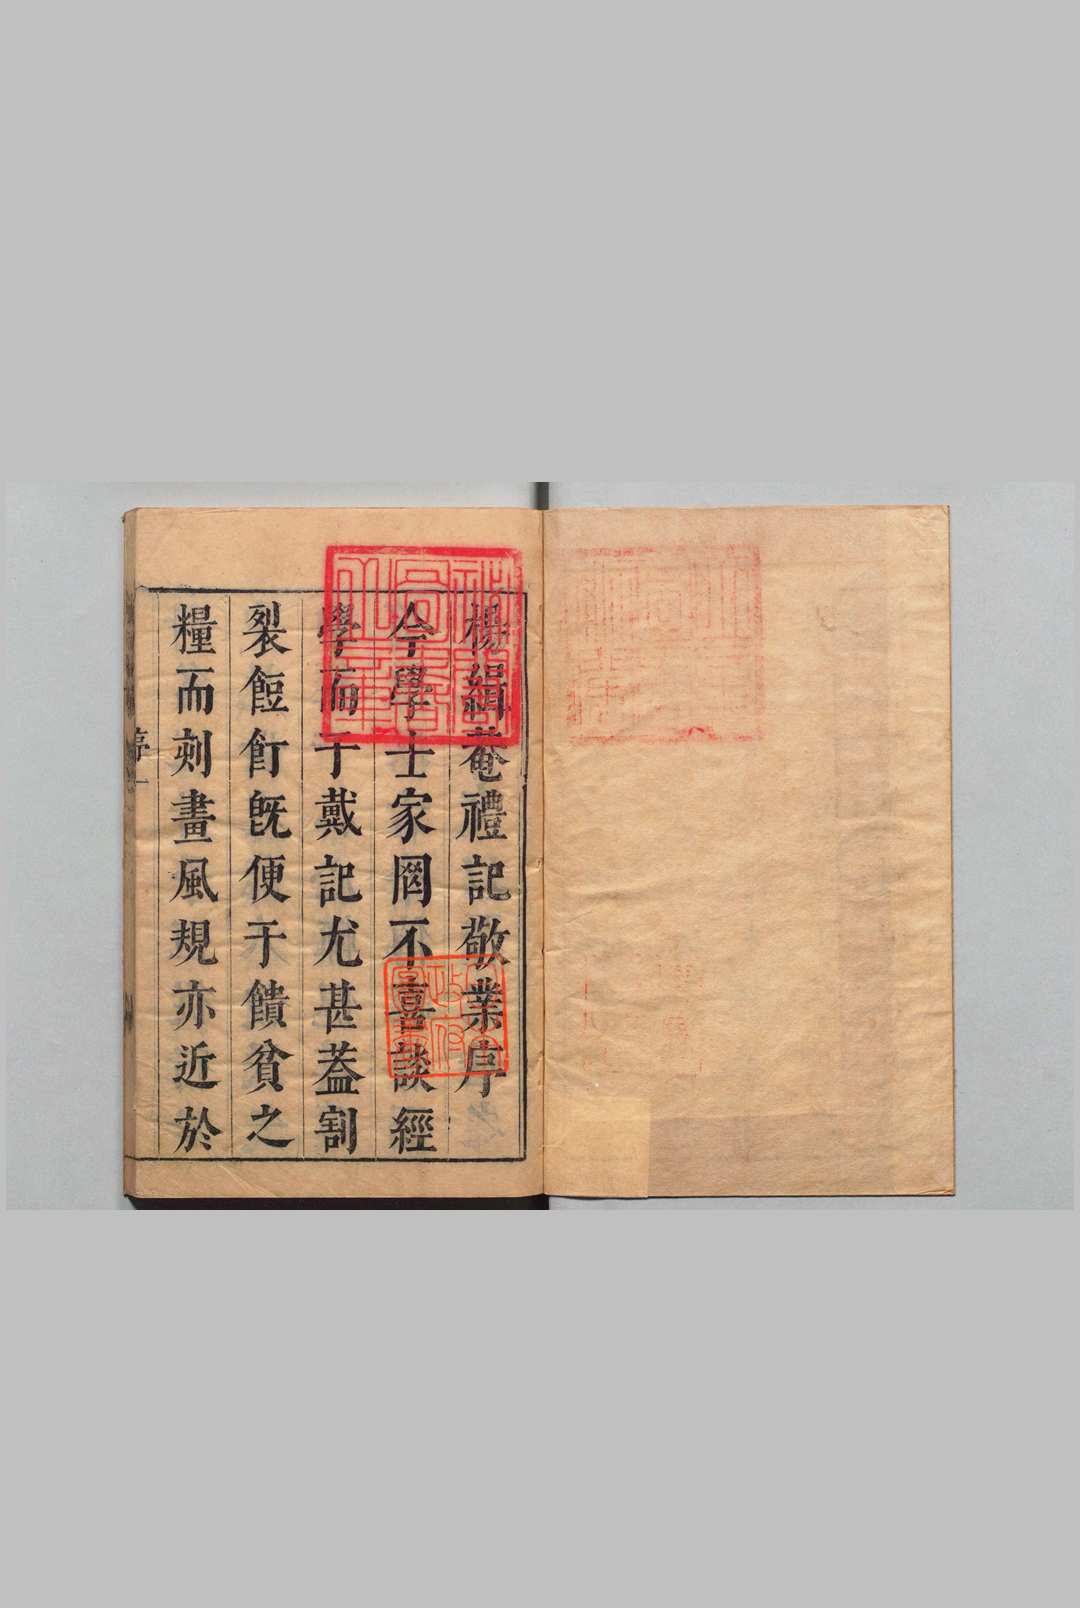 楊緝菴禮記敬業序
今學士家罔不喜談經
學而于戴記尤甚蓋割
裂餖飣旣便于饋貧之
糧而刻畫風規亦近於
序 一